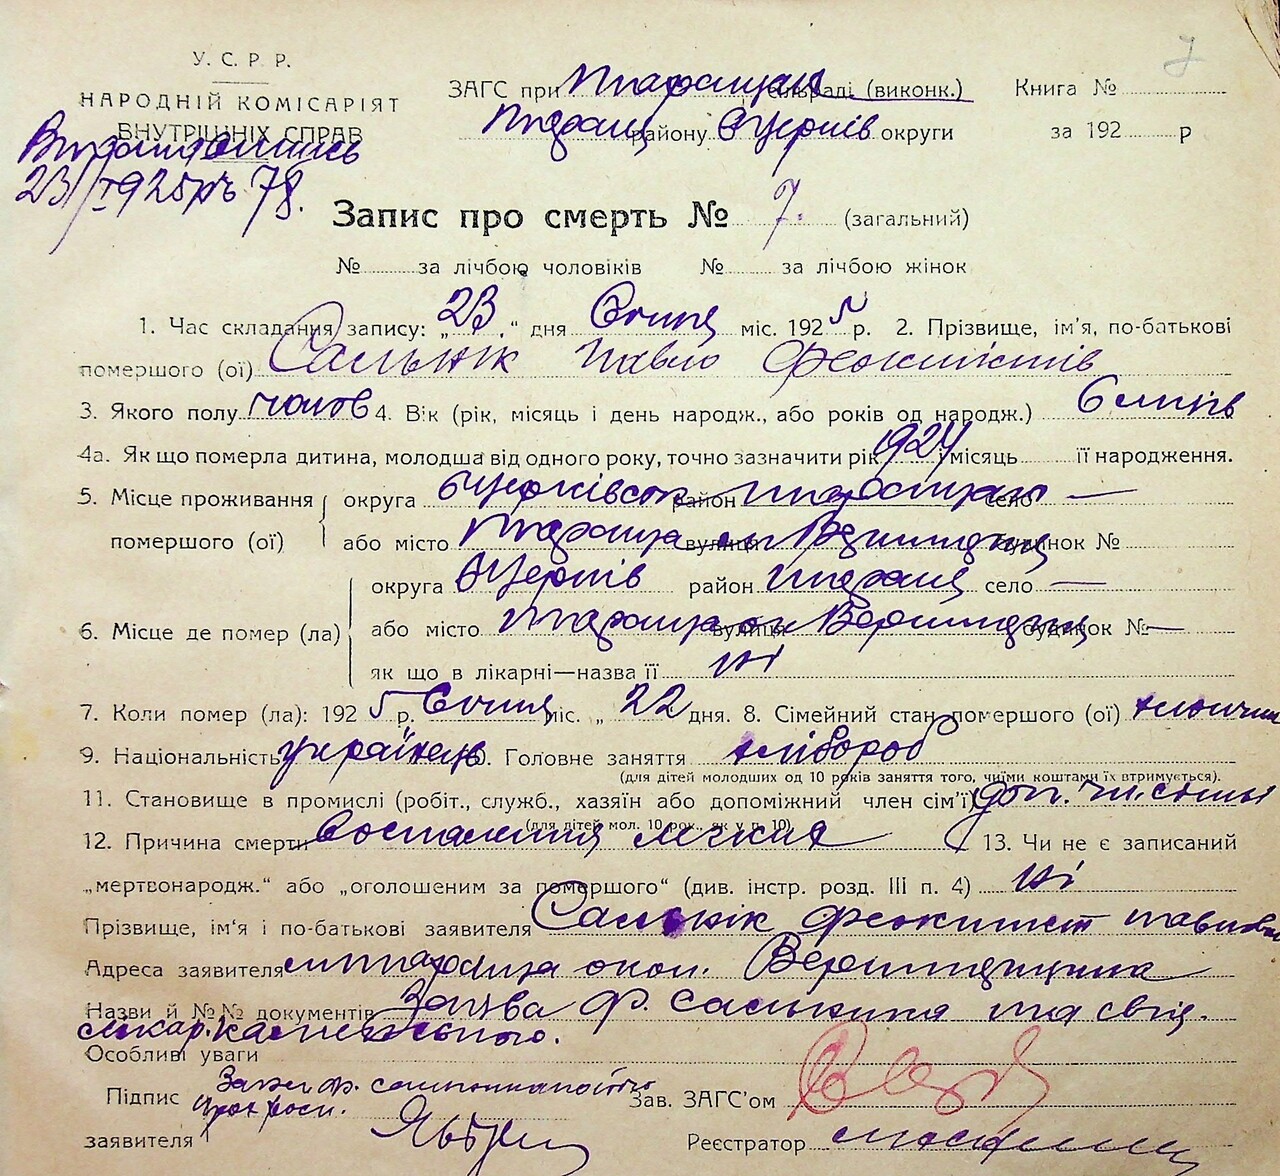 У. С. Р. Р.
НАРОДНІЙ КОМІСАРІЯТ
ВНУТРІШНІХ СПРАВ
23/I 1925 р № 78.
7
ЗАГС при Таращан сільраді (виконк.) Книга №
Таращ району Бцерків округи за 192 р
Запис про смерть № 7. (загальний)
№ за лічбою чоловіків № за лічбою жінок
1. Час складання запису: „23“ дня Січня міс. 1925 р. 2. Прізвище, ім'я, по-батькові
помершого (ої) Сальнік Павло Феоктістів
3. Якого полу чолов 4. Вік (рік, місяць і день народж., або років од народж.) 6
4а. Як що померла дитина, молодша від одного року, точно зазначити рік 1924 місяць її народження.
5. Місце проживання округа бцерківськ район таращан село —
помершого (ої) або місто Тараща вулиця будинок №
округа Бцерків район таращ село —
6. Місце де помер (ла) або місто Тараща ок вулиця будинок № —
як що в лікарні—назва її ні
7. Коли помер (ла): 1925 р. Січня міс. „22 дня. 8. Сімейний стан помершого (ої)
9. Національність українець 10. Головне заняття хлібороб
(для дітей молодших од 10 років заняття того, чиїми коштами їх втримується).
11. Становище в промислі (робіт., служб., хазяїн або допоміжний член сім'ї) доп. чл. сім'ї
(для дітей мол. 10 рок., як у п. 10)
12. Причина смерти воспаления легких 13. Чи не є записаний
„мертвонародж.“ або „оголошеним за помершого“ (див. інстр. розд. III п. 4) ні
Прізвище, ім'я і по-батькові заявителя Сальнік Феоктист
Адреса заявителя м Тараща окол.
Назви й №№ документів Заява Ф. Сальника та свід.
лікар.
Особливі уваги
Підпис За
заявителя
Зав. ЗАГС'ом
Реєстратор